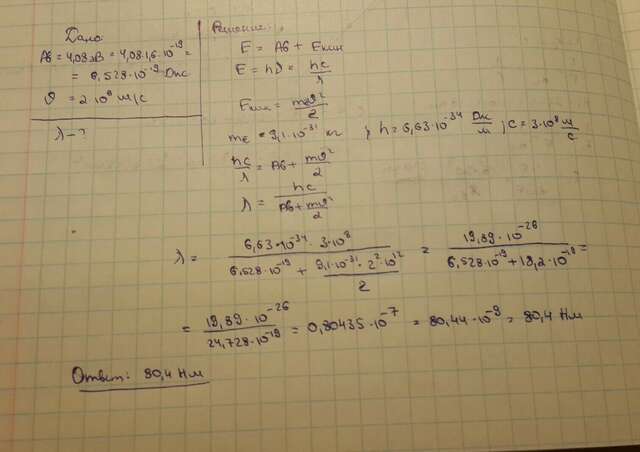 Дано:
Aв = 4,08эВ = 4,08·1,6·10⁻¹⁹ =
= 6,528·10⁻¹⁹ Дж
υ = 2·10⁶ м/с
λ - ?
Решение:
E = Aв + Eкин
E = hν = hc/λ
Eкин = mυ²/2
me = 9,1·10⁻³¹ кг ; h = 6,63·10⁻³⁴ Дж/м ; c = 3·10⁸ м/с
hc/λ = Aв + mυ²/2
λ = hc/(Aв + mυ²/2)
λ = (6,63·10⁻³⁴ · 3·10⁸)/(6,528·10⁻¹⁹ + (9,1·10⁻³¹ · 2²·10¹²)/2) = (19,89·10⁻²⁶)/(6,528·10⁻¹⁹ + 18,2·10⁻¹⁹) =
= (19,89·10⁻²⁶)/(24,728·10⁻¹⁹) = 0,80435·10⁻⁷ = 80,44·10⁻⁹ = 80,4 Нм
Ответ: 80,4 Нм